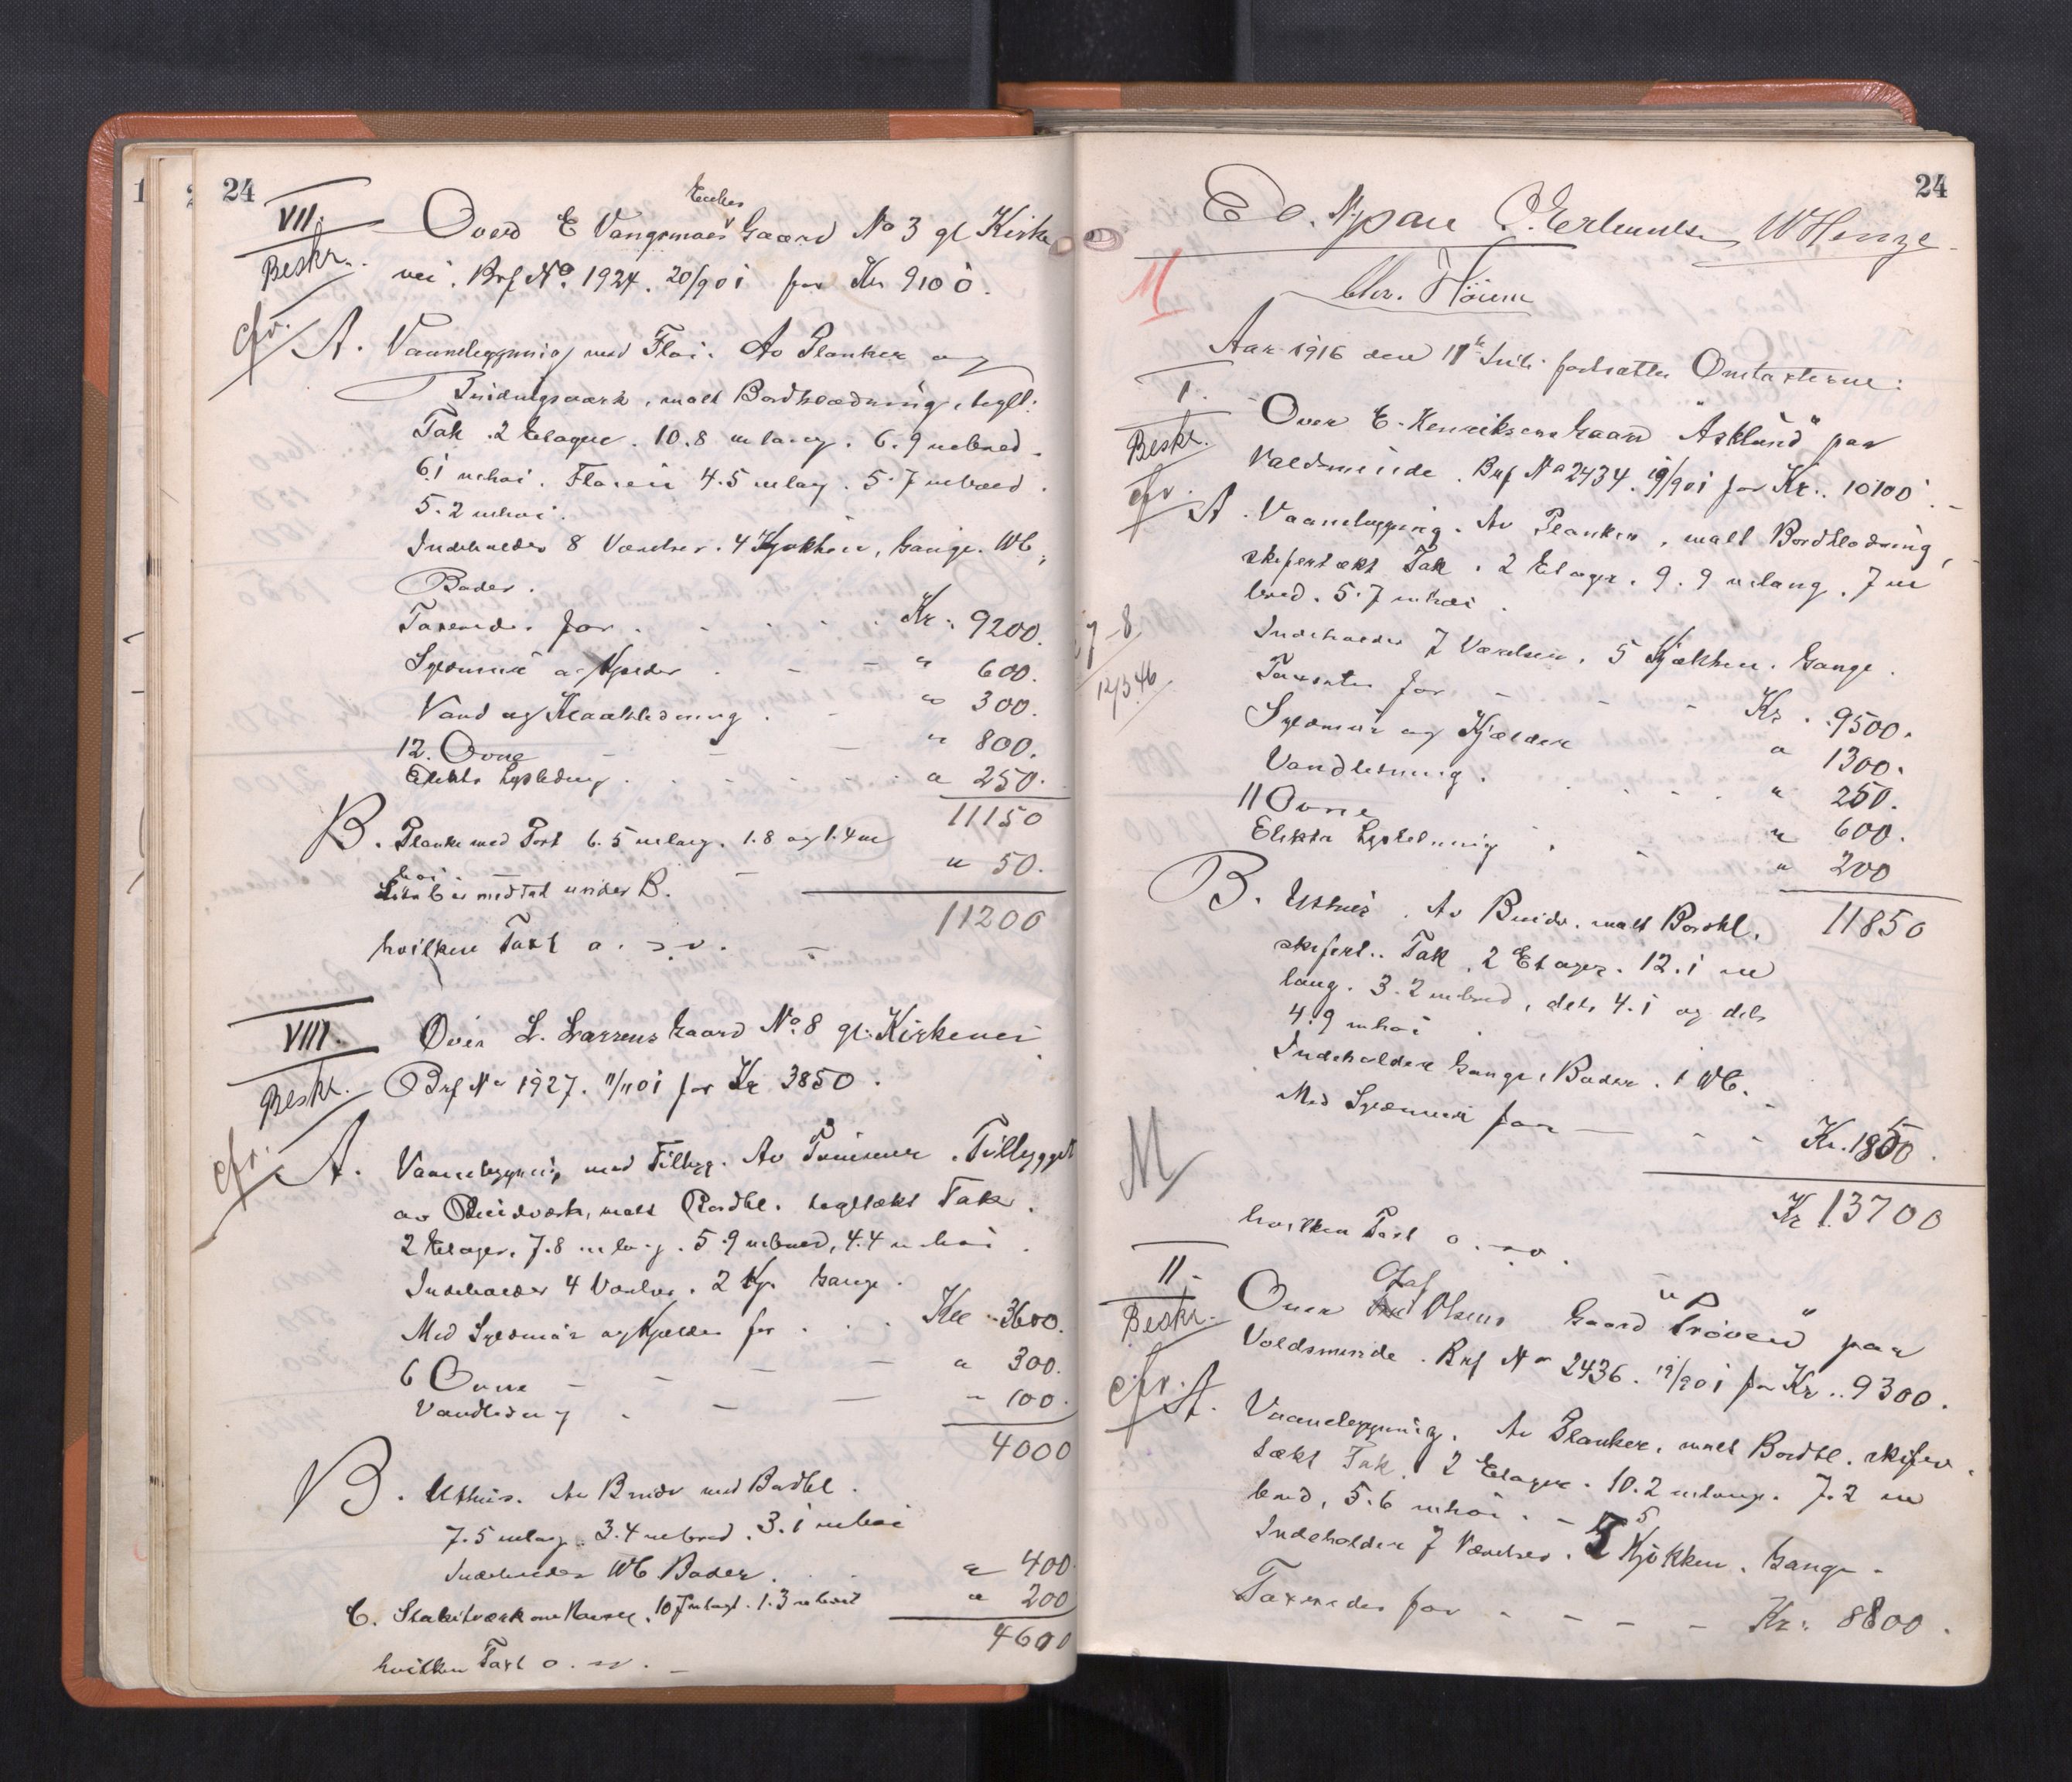 24
VII.
Enkes
Over E Vangsnaes Gaard No 3 gl Kirke
Beskr.
vei. Brf No. 1924. 20/901 for Kr 9100.
cfr.
A. Vaanebygning med Fløi. Av Planker og
Bindingsværk, malt Bordklædning, teglt.
Tak. 2 Etager. 10.8 m lang. 6.9 m bred.
6.1 m høi. Fløien 4.5 m lang. 5.7 m bred.
5.2 m høi.
Indeholder 8 Værelser. 4 Kjøkken, Gange. WC,
Boder.
Taxeredes for . . . . Kr. 9200.
Syldmur og Kjelder . - - " 600.
Vand og Kloakledning . - " 300.
12. Ovne - - - " 800.
Elektr Lysledning . . . . " 250.
11150
B. Planke med Port 6.5 m lang. 1.8 og 1.4 m
høi. - - " 50.
Litr C er medtat under B.
11200
hvilken Taxt o. s. v. -
VIII.
Over L. Larsens Gaard No. 8 gl. Kirkevei
Beskr.
Brf No 1927. 11/1101 for Kr 3850.
cfr.
A. Vaanebygning med Tilbyg. Av Tømmer. Tilbygget
av Bindværk, malt Bordkl. tegltækt Tak.
2 Etager. 7.8 m lang. 5.9 m bred, 4.4 m høi.
Indeholder 4 Værelser. 2 Kj. Gange.
Med Syldmur og Kjelder for . . . Kr 3600.
6 Ovne - - - - " 300.
Vandledning . - - " 100.
4000
B. Uthus. Av Bindv med Bordkl.
7.5 m lang. 3.4 m bred. 3.1 m høi
Indeholder WC Boder. . . " 400
C. Stakitværk om Haven. 10.7 m langt. 1.3 m høit " 200
4600
hvilken Taxt o. s. v. -
24
Ed. Nypan C. Erlandsen W Henze
Chr. Höium
M
Aar 1916 den 11te Juli fortsattes Omtaxterne:
I.
Over E. Henriksens Gaard "Asklund" paa
Beskr.
Valdsminde. Brf No 2434. 19/901 for Kr. 10100. -
cfr.
A. Vaanebygning. Av Planker, malt Bordklædning,
skifertækt Tak. 2 Etager. 9.9 m lang. 7 m
bred. 5.7 m høi.
Indeholder 7 Værelser. 5 Kjøkken. Gange.
7-8
12/3 46
Taxertes for - - - Kr. 9500.
Syldmur og Kjælder " 1300.
Vandledning. . . . . " 250.
11 Ovne " 600.
Elektr Lysledning . . " 200
11850
B. Uthus. Av Bindv. malt Bordkl.
skifert. Tak. 2 Etager. 12.1 m
lang. 3.2 m bred, dels 4.1 og dels
4.9 m høi.
Indeholder Gange, Boder. 1 WC.
Med Syldmur for - - - Kr. 1850.
M
Kr 13700
hvilken Taxt o. s. v.
II.
Olaf
Over Olsens Gaard "Prøven" paa
Beskr.
Voldsminde. Brf No 2436. 19/901 for Kr. 9300.
cfr.
A. Vaanebygning. Av Planker, malt Bordkl. skifer
tækt Tak. 2 Etager. 10.2 m lang. 7.2 m
bred, 5.6 m høi. -
5
Indeholder 7 Værelser. Kjøkken. Gange.
Taxeredes for - - - - Kr. 8800.